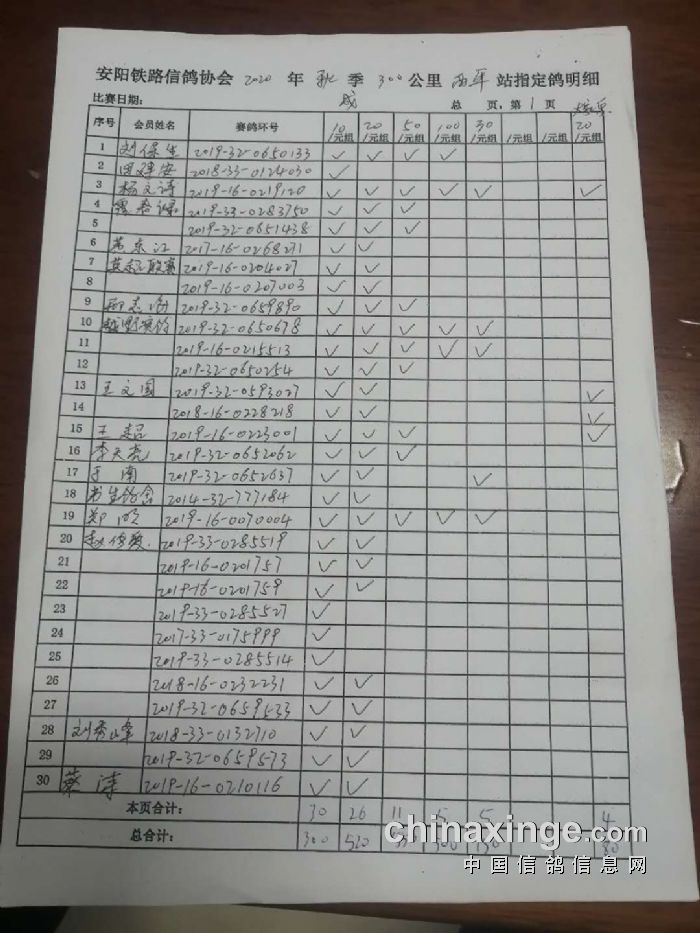 安阳铁路信鸽协会 2020 年 秋 季 300 公里 站指定鸽明细
比赛日期: 成 总 页: 第 1 页
序号 会员姓名 赛鸽环号 10/元组 20/元组 50/元组 100/元组 30/元组 /元组 /元组 20/元组
1 刘保生 2019-32-0650133 ✓ ✓ ✓ ✓
2 田建安 2018-33-0124030 ✓
3 杨文清 2019-16-0219120 ✓ ✓ ✓ ✓ ✓ ✓
4 2019-33-0283750 ✓ ✓ ✓
5 2019-32-0651438 ✓ ✓ ✓
6 东江 2017-16-0268271 ✓ ✓
7 2019-16-0204027 ✓ ✓
8 2019-16-0207003 ✓ ✓
9 2019-32-0659890 ✓ ✓ ✓
10 2019-32-0650678 ✓ ✓ ✓ ✓ ✓
11 2019-16-0215513 ✓ ✓ ✓ ✓ ✓
12 2019-32-0650254 ✓ ✓ ✓
13 王文国 2019-32-0593027 ✓ ✓ ✓
14 2018-16-0228218 ✓ ✓ ✓
15 王 2019-16-0223001 ✓ ✓ ✓ ✓
16 李天亮 2019-32-0652062 ✓ ✓ ✓
17 于南 2019-32-0652637 ✓ ✓ ✓
18 书生鸽舍 2014-32-777184 ✓ ✓
19 郑 2019-16-0070004 ✓ ✓ ✓ ✓ ✓
20 赵俊 2019-33-0285519 ✓ ✓
21 2019-16-0201757 ✓ ✓
22 2019-16-0201759 ✓ ✓
23 2019-33-0285527 ✓
24 2017-33-0175999 ✓
25 2019-33-0285514 ✓
26 2018-16-0232231 ✓ ✓
27 2019-32-0659533 ✓ ✓
28 刘秀峰 2018-33-0132710 ✓ ✓
29 2019-32-0659573 ✓ ✓
30 蔡涛 2019-16-0210116 ✓ ✓
本页合计: 30 26 11 5 5 4
总合计: 300 520 550 500 150 80
chinaxinge.com
中国信鸽信息网